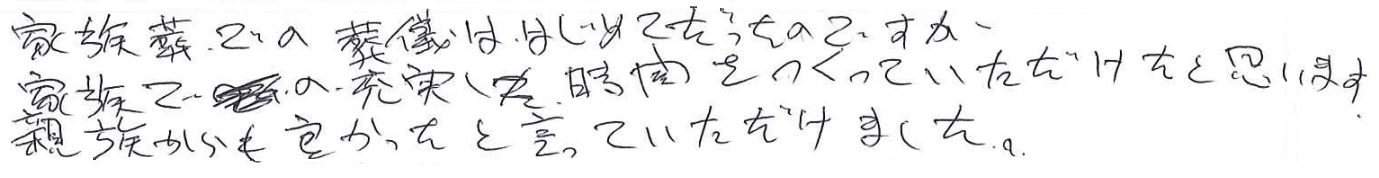 家族葬での葬儀ははじめてだったのですが
家族での充実した時間をつくっていただけたと思います
親族からも良かったと言っていただけました。